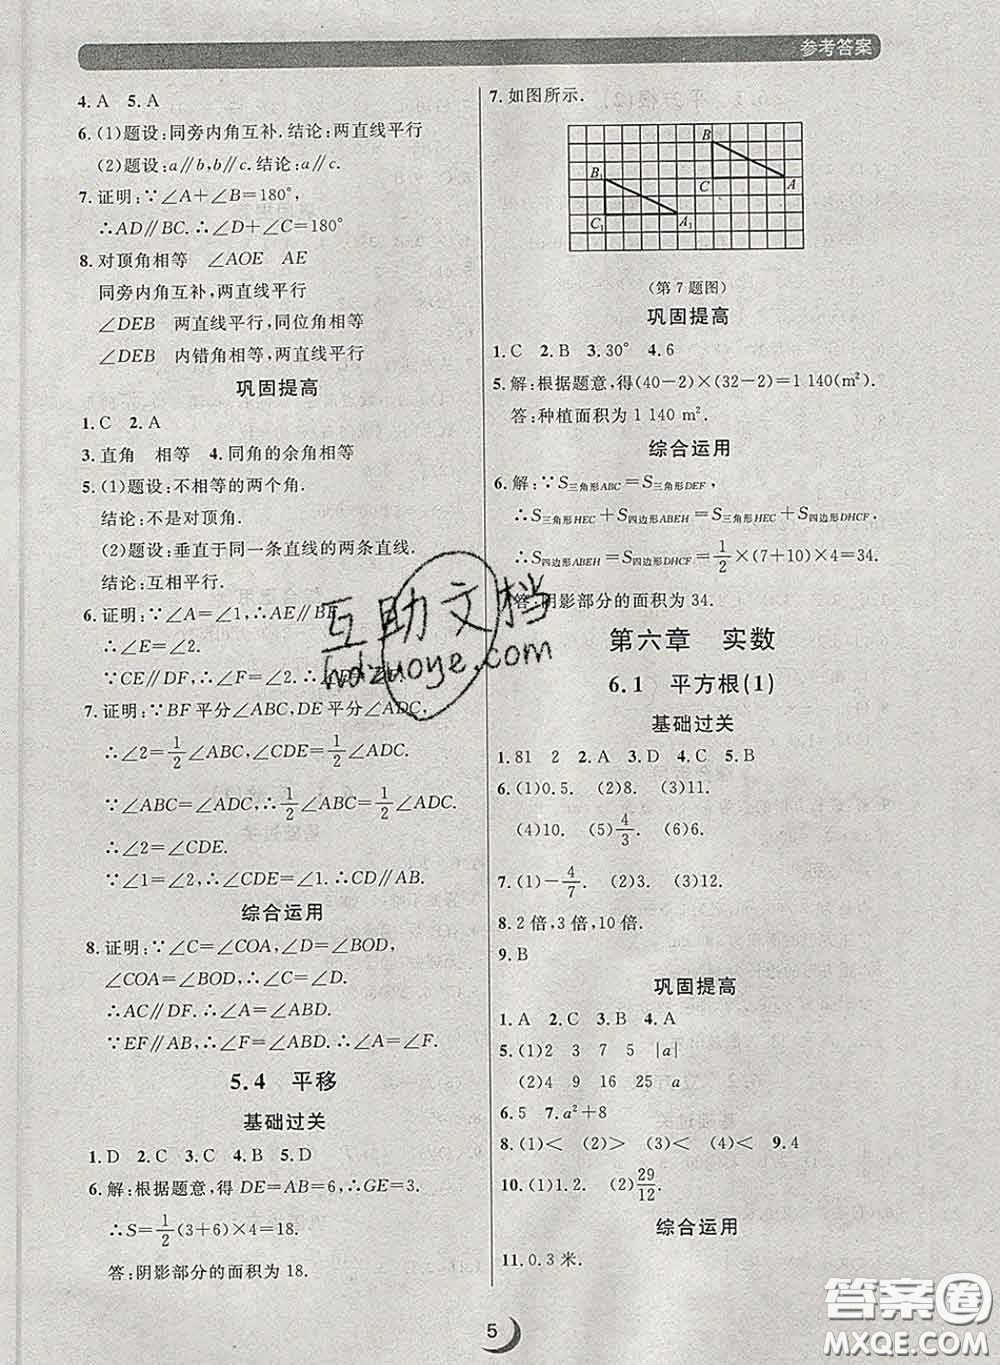 参考答案
4.A 5.A
6.(1)题设:同旁内角互补.结论:两直线平行
(2)题设:a∥b,b∥c.结论:a∥c.
7.证明:∵∠A+∠B=180°,
∴AD∥BC.∴∠D+∠C=180°
8.对顶角相等 ∠AOE AE
同旁内角互补,两直线平行
∠DEB 两直线平行,同位角相等
∠DEB 内错角相等,两直线平行
巩固提高
1.C 2.A
3.直角 相等 4.同角的余角相等
5.(1)题设:不相等的两个角.
结论:不是对顶角.
(2)题设:垂直于同一条直线的两条直线.
结论:互相平行.
6.证明:∵∠A=∠1,∴AE∥BF.
∴∠E=∠2.
∵CE∥DF,∴∠E=∠F.
7.证明:∵BF平分∠ABC,DE平分∠ADC,
∴∠2=1/2∠ABC,∠CDE=1/2∠ADC.
∵∠ABC=∠ADC,∴1/2∠ABC=1/2∠ADC.
∴∠2=∠CDE.
∵∠1=∠2,∴∠CDE=∠1.∴CD∥AB.
综合运用
8.证明:∵∠C=∠COA,∠D=∠BOD,
∠COA=∠BOD,∴∠C=∠D.
∴AC∥DF.∴∠A=∠ABD.
∵EF∥AB,∴∠F=∠ABD.∴∠A=∠F.
5.4 平移
基础过关
1.D 2.C 3.C 4.B 5.D
6.解:根据题意,得DE=AB=6,∴GE=3.
∴S=1/2(3+6)×4=18.
答:阴影部分的面积为18.
7.如图所示.
B
B₁
C
A
C₁
A₁
(第7题图)
巩固提高
1.C 2.B 3.30° 4.6
5.解:根据题意,得(40-2)×(32-2)=1 140(m²).
答:种植面积为1 140 m².
综合运用
6.解:∵S三角形ABC=S三角形DEF,
∴S三角形HEC+S四边形ABEH=S三角形HEC+S四边形DHCF.
∴S四边形ABEH=S四边形DHCF=1/2×(7+10)×4=34.
答:阴影部分的面积为34.
第六章 实数
6.1 平方根(1)
基础过关
1.81 2 2.A 3.D 4.C 5.B
6.(1)0.5. (2)8. (3)11.
(4)10. (5)4/3. (6)6.
7.(1)-4/7. (2)3. (3)12.
8.2倍,3倍,10倍.
9.B
巩固提高
1.A 2.C 3.B 4.A
5.(1)2 3 7 5 |a|
(2)4 9 16 25 a
6.5 7.a²+8
8.(1)< (2)> (3)< (4)< 9.4
10.(1)1.2. (2)29/12.
综合运用
11.0.3米.
5
互助文档
hdzuoye.com
答案圈
MXQE.COM